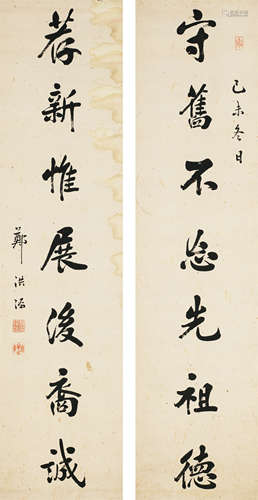 己未冬日
守舊不忘先祖德
荐新惟展後裔誠
鄭洪源